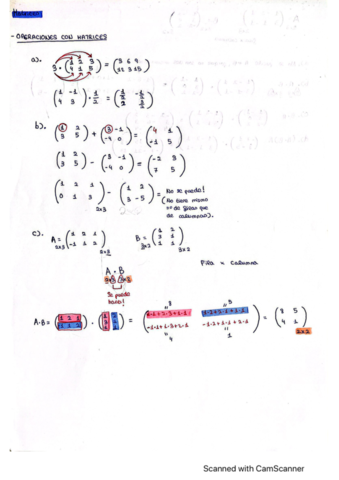 Matrices
- OPERACIONES CON MATRICES
a). 3 · (1 2 3 / 4 1 5) = (3 6 9 / 12 3 15)
(1 -1 / 4 3) · 1/2 =
b). (1 2 / 3 5) + (3 -1 / -4 0) = (4 1 / -1 5)
(1 2 / 3 5) - (3 -1 / -4 0) = (-2 3 / 7 5)
(1 2 1 / 0 1 3) 2x3 - (1 2 / 3 -5) = No se puede!
(No tiene mismo
nº de filas que
de columnas).
c). A = (1 2 1 / -1 1 2) 2x3 B = (1 2 / 3 1 / 1 1) 3x2
Fila x Columna
A · B
2x3 3x2
Se puede
hacer!
A·B = (1 2 1 / -1 1 2) · (1 2 / 3 1 / 1 1) = (8 5 / 4 1) 2x2
8 5
4 1
Scanned with CamScanner